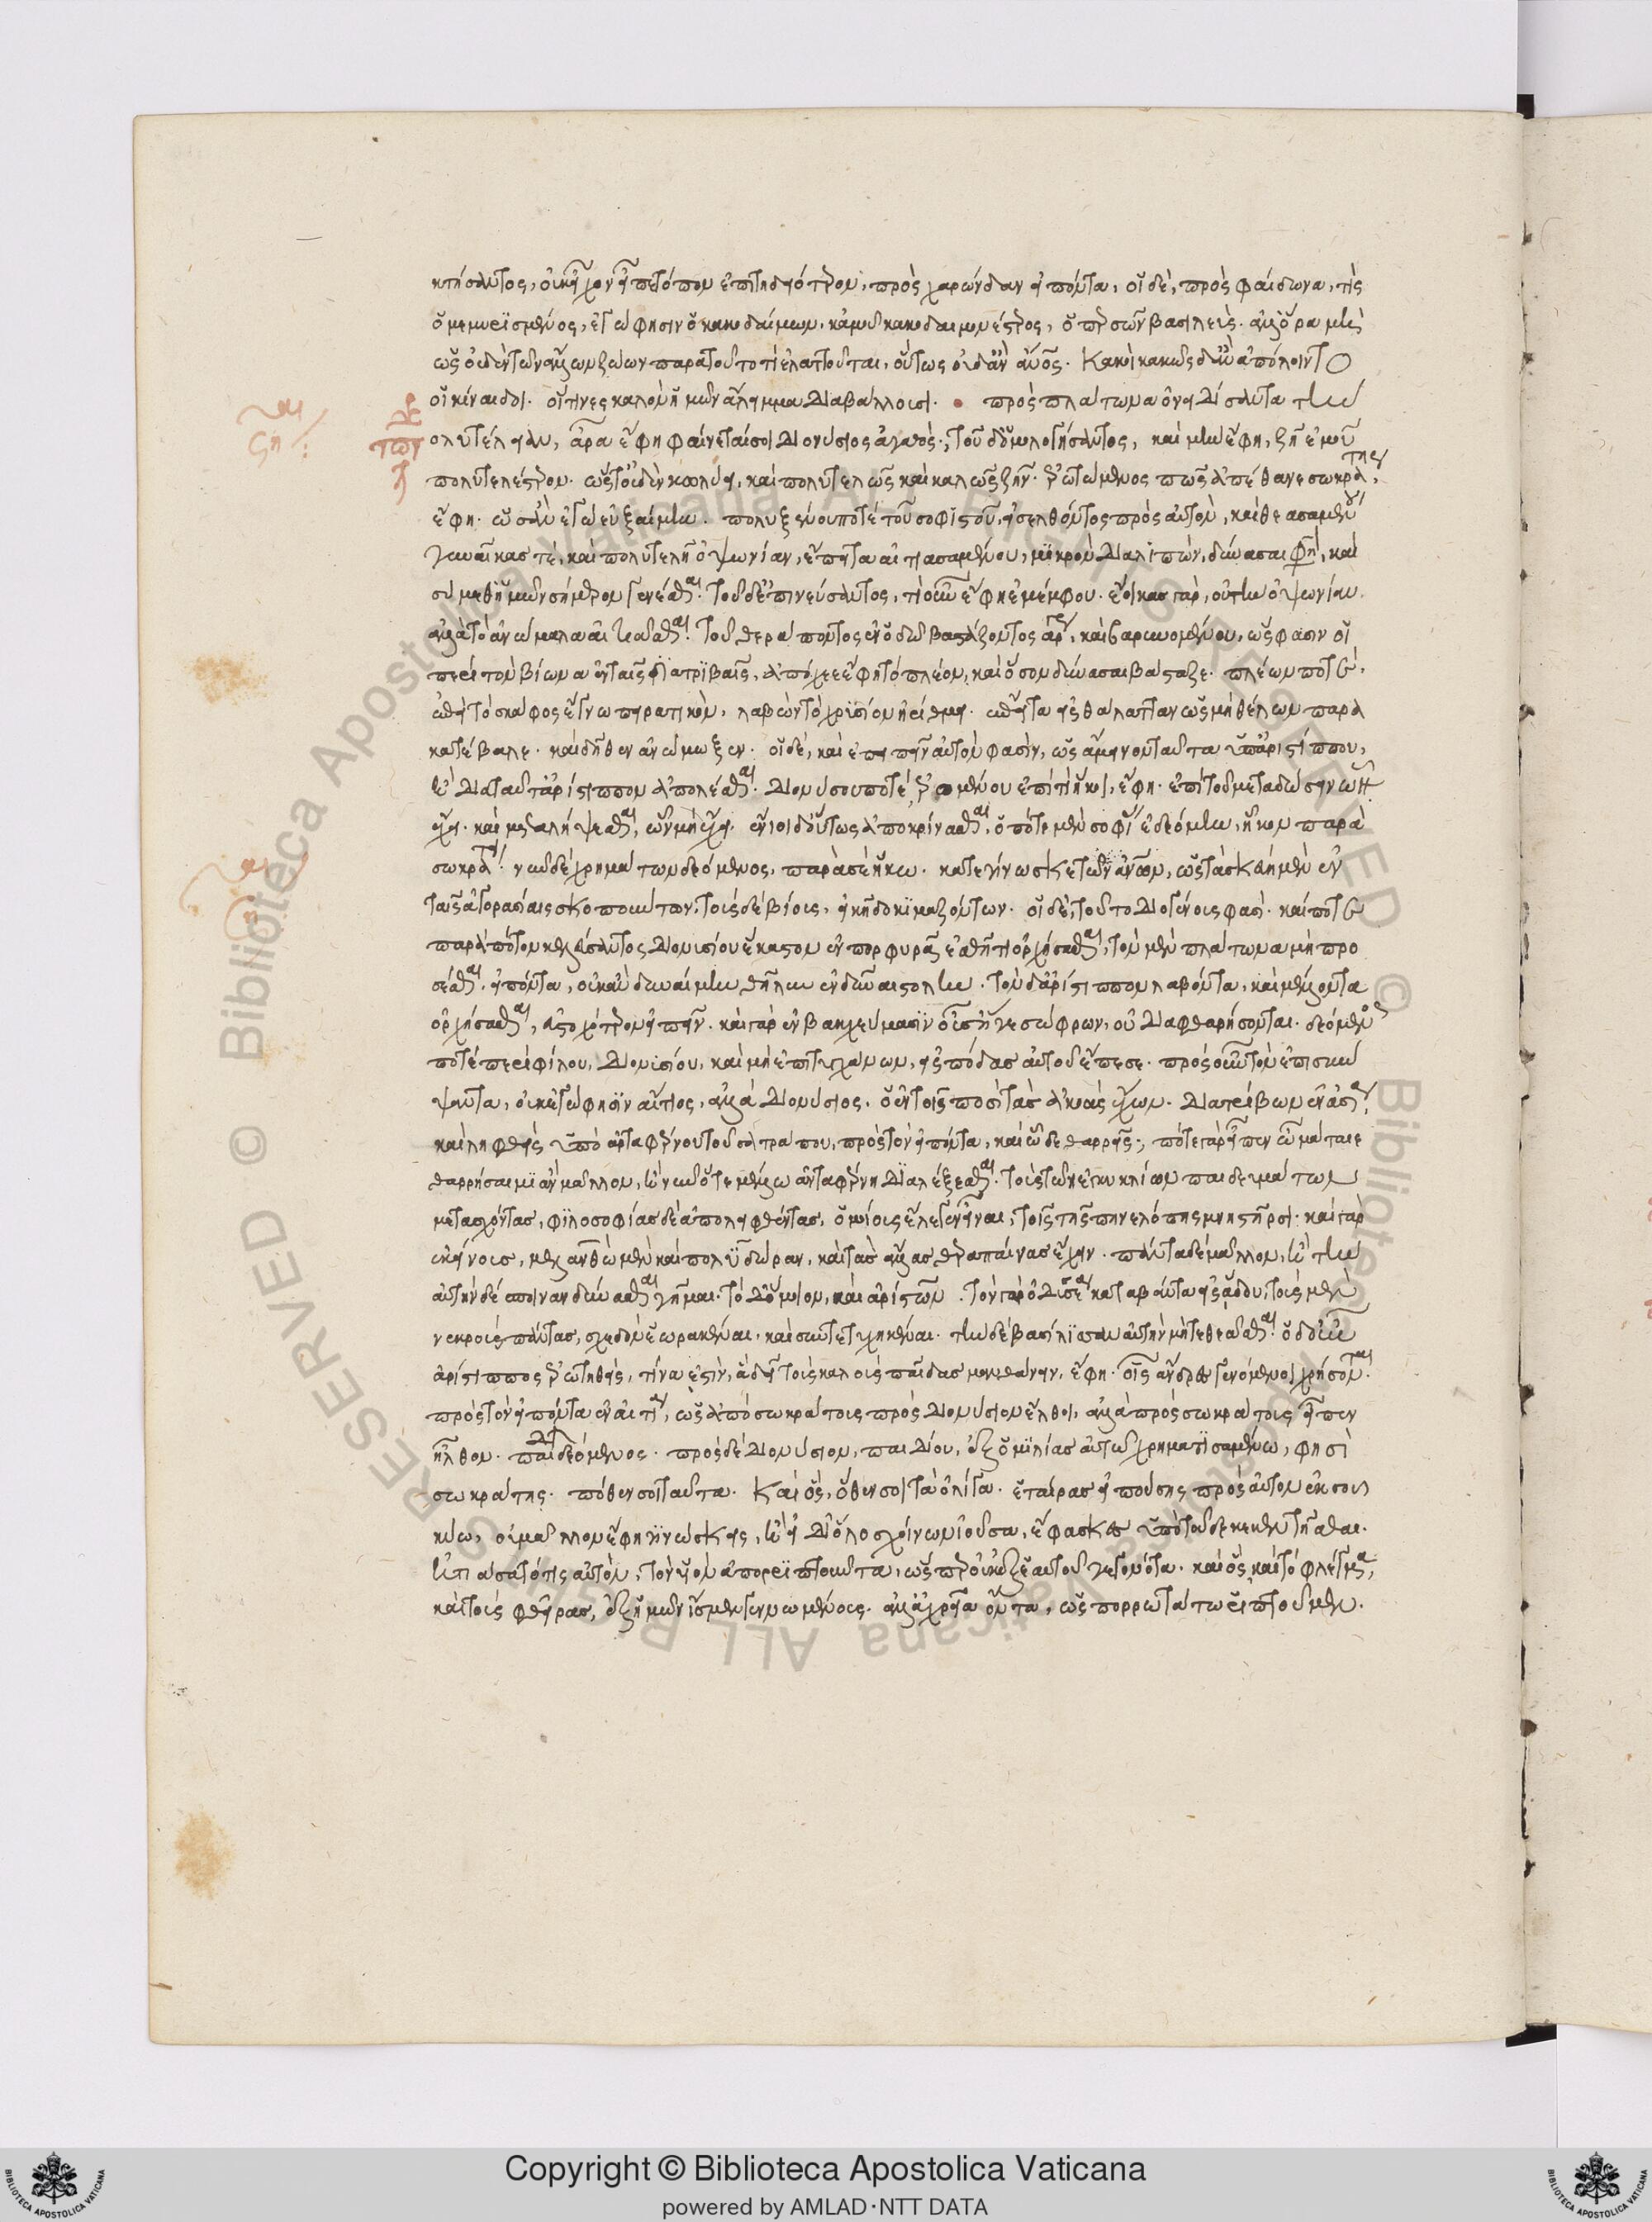 κτήσαντος, οὐκ εἶχον εἶπε τόπον ἐπιτηδειότερον, πρὸς χαρώνδαν εἰπόντα, οἱ δὲ, πρὸς φαίδωνα, τίς
ὁ μεμυρισμένος, ἐγώ φησιν ὁ κακοδαίμων. κἀμοῦ κακοδαιμονέστερος, ὁ περσῶν βασιλεύς. ἀλλ' ὅρα μὴ
ὡς οὐδὲν τῶν ἄλλων ζώων παρὰ τοῦτο τί ἐλαττοῦται, οὕτως οὐδ' ἂν ἄνος. κακοὶ κακῶς δ' ἂν ἀπόλοιντο
οἱ κίναιδοι. οἵτινες καλὸν ἡμῶν ἄλημμα διαβάλλουσι. πρὸς πλάτωνα ὀνειδίσαντα τὴν
πολυτέλειαν, ἆρα ἔφη φαίνεταί σοι διονύσιος ἀγαθός; τοῦ δ' ὁμολογήσαντος, καὶ μὴν ἔφη, ζῆ ἐμοῦ
πολυτελέστερον. ὥστ' οὐδὲν κωλύει, καὶ πολυτελῶς καὶ καλῶς ζῆν. ἐρωτώμενος πῶς ἀπέθανε σωκράτης,
ἔφη. ὡς ἂν ἐγὼ εὐξαίμην. πολυξένου ποτέ τοῦ σοφιστοῦ, εἰσελθόντος πρὸς αὐτὸν, καὶ θεασαμένου
γυναῖκας τὲ, καὶ πολυτελῆ ὀψωνίαν, ἔπειτα αἰτιασαμένου, μικρὸν διαλιπὼν, δύνασαι φησὶ, καὶ
σὺ μεθ' ἡμῶν σήμερον γενέσθαι. τοῦ δ' ἐπινεύσαντος, τί οὖν ἔφη ἐμέμφου. ἔοικας γὰρ, οὐ τὴν ὀψωνίαν.
ἀλλὰ τὸ ἀνώμαλα αἰτιᾶσθαι. τοῦ θεράποντος ἐν ὁδῷ βαστάζοντος ἀργύριον, καὶ βαρυνομένου, ὥς φασιν οἱ
περὶ τὸν βίωνα ἐν ταῖς διατριβαῖς, ἀπόχεε ἔφη τὸ πλέον, καὶ ὅσον δύνασαι βάσταζε. πλέων ποτὲ,
ἐπεὶ τὸ σκάφος ἔγνω πειρατικὸν, λαβὼν τὸ χρυσίον ἠρίθμει. ἔπειτα εἰς θάλατταν ὡς μὴ θέλων παρα
κατέβαλε. καὶ δῆθεν ἀνώμωξεν. οἱ δὲ, καὶ ἐπειπεῖν αὐτὸν φασὶν, ὡς ἄμεινον ταῦτα ὑπ' ἀριστίππου,
ἢ διὰ ταῦτα ἀρίστιππον ἀπολέσθαι. διονυσίου ποτέ, ἐρομένου ἐπὶ τί ἥκοι, ἔφη. ἐπὶ τοῦ μεταδώσειν ὧν
ἔχει. καὶ μεταλήψεσθαι, ὧν μὴ ἔχει. ἔνιοι δ' οὕτως ἀποκρίνασθαι, ὁπότε μὲν σοφίας ἐδεόμην, ἧκον παρὰ
σωκράτη. νῦν δέ χρημάτων δεόμενος, παρὰ σὲ ἥκω. κατεγίνωσκε τῶν ἀνων, ὡς τὰ σκεύη μὲν ἐν
ταῖς ἀγορασίαις σκοπούντων, τοὺς δὲ βίους, εἰκῆ δοκιμαζόντων. οἱ δὲ, τοῦτο διογένους φασί. καί ποτε
παρὰ πότον κελεύσαντος διονυσίου ἕκαστον ἐν πορφυρᾷ ἐσθῆτι ὀρχήσασθαι, τὸν μὲν πλάτωνα μὴ προ
σέσθαι. εἰπόντα, οὐκ ἂν δυναίμην θῆλυν ἐνδῦναι στολὴν. τὸν δ' ἀρίστιππον λαβόντα, καὶ μέλλοντα
ὀρχήσασθαι, εὐστοχώτερον εἰπεῖν. καὶ γὰρ ἐν βακχεύμασιν οὖσ' ἥ γε σώφρων, οὐ διαφθαρήσεται. δεόμενος
ποτέ περὶ φίλου, διονυσίου, καὶ μὴ ἐπιτυγχάνων, εἰς πόδας αὐτοῦ ἔπεσε. πρὸς οὖν τὸν ἐπισκώ
ψαντα, οὐκ ἐγώ φησὶν αἴτιος, ἀλλὰ διονύσιος. ὁ ἐν τοῖς ποσὶ τὰς ἀκοὰς ἔχων. διατρίβων ἐν ἀσίᾳ,
καὶ ληφθεὶς ὑπὸ ἀρταφέρνου τοῦ σατράπου, πρὸς τὸν εἰπόντα, καὶ ὧδε θαρρεῖς; πότε γὰρ εἶπεν ὦ μάταιε
θαρρήσαιμι ἂν μᾶλλον, ἢ νῦν ὅτε μέλλω ἀρταφέρνη διαλέξεσθαι. τοὺς τῶν ἐγκυκλίων παιδευμάτων
μετασχόντας, φιλοσοφίας δὲ ἀπολειφθέντας, ὁμοίους ἔλεγεν εἶναι, τοῖς τῆς πηνελόπης μνηστῆρσι. καὶ γὰρ
ἐκείνους, μελανθὼ μὲν καὶ πολυδώραν, καὶ τὰς ἄλλας θεραπαίνας ἔχειν. πάντα δὲ μᾶλλον, ἢ τὴν
αὐτὴν δέσποιναν δύνασθαι γῆμαι. τὸ δ' ὅμοιον, καὶ ἀρίστων. τὸν γὰρ ὀδυσσέα καταβάντα εἰς ᾅδου, τοὺς μὲν
νεκροὺς πάντας, σχεδὸν ἑωρακέναι, καὶ συντετυχηκέναι. τὴν δὲ βασίλισσαν αὐτὴν μὴ τεθεᾶσθαι. ὁ δ' οὖν
ἀρίστιππος ἐρωτηθεὶς, τίνα ἐστὶν, ἃ δεῖ τοὺς καλοὺς παῖδας μανθάνειν, ἔφη. οἷς ἄνδρες γενόμενοι χρήσονται.
πρὸς τὸν εἰπόντα ἐν αἰτίᾳ, ὡς ἀπὸ σωκράτους πρὸς διονύσιον ἔλθοι, ἀλλὰ πρὸς σωκράτους εἶπεν
ἦλθον. παιδείας δεόμενος. πρὸς δὲ διονύσιον, παιδιᾶς, ἐξ ὁμιλίας αὐτῷ χρηματισαμένῳ, φησὶ
σωκράτης. πόθεν σοι ταῦτα. καὶ ὃς, ὅθεν σοι τὰ ὀλίγα. ἑταίρας εἰπούσης πρὸς αὐτὸν ἐκ σου
κύω, οὐ μᾶλλον ἔφη γινώσκεις, ἢ εἰ δι' ὁλοσχοίνων ἰοῦσα, ἔφασκες ὑπὸ τοῦδε κεκεντῆσθαι.
ᾐτιάσατό τις αὐτὸν, τὸν υἱὸν ἀπορριπτοῦντα, ὥσπερ οὐκ ἐξ ἑαυτοῦ γεγονότα. καὶ ὃς, καὶ τὸ φλέγμα,
καὶ τοὺς φθεῖρας, ἐξ ἡμῶν ἴσμεν γεννωμένους. ἀλλ' ἀχρεῖα ὄντα, ὡς πορρωτάτω ῥιπτοῦμεν.